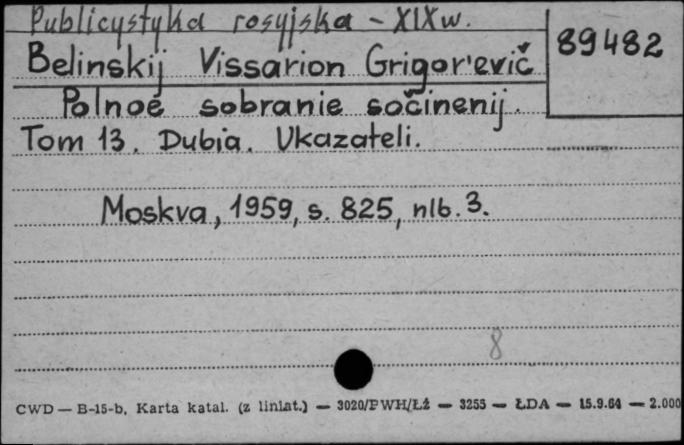 Publicystyka rosyjska - XIX w.
89482
Belinskij Vissarion Grigor'evič
Polnoe sobranie sočinenij.
Tom 13. Dubia. Ukazateli.
Moskva, 1959, s. 825, nlb. 3.
8
CWD — B-15-b, Karta katal. (z liniat.) — 3020/PWH/Ł2 — 3255 — ŁDA — 15.9.64 — 2.000